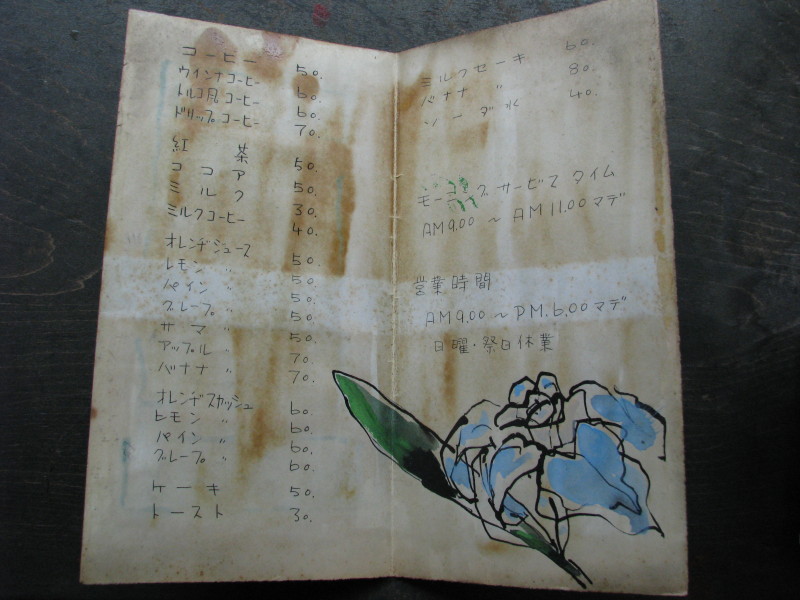 コーヒー 50.
ウインナコーヒー 60.
トルコ風コーヒー 60.
ドリップコーヒー 70.
紅茶 50.
ココア 50.
ミルク 30.
ミルクコーヒー 40.
オレンヂジュース 50.
レモン 〃 50.
パイン 〃 50.
グレープ 〃 50.
サマー 〃 50.
アップル 〃 70.
バナナ 〃 70.
オレンヂスカッシュ 60.
レモン 〃 60.
パイン 〃 60.
グレープ 〃 60.
ケーキ 50.
トースト 30.
ミルクセーキ 60.
バナナ 〃 80.
ソーダ水 40.
モーニングサービスタイム
AM9.00 ~ AM11.00マデ
営業時間
AM9.00 ~ PM.6.00マデ
日曜・祭日休業